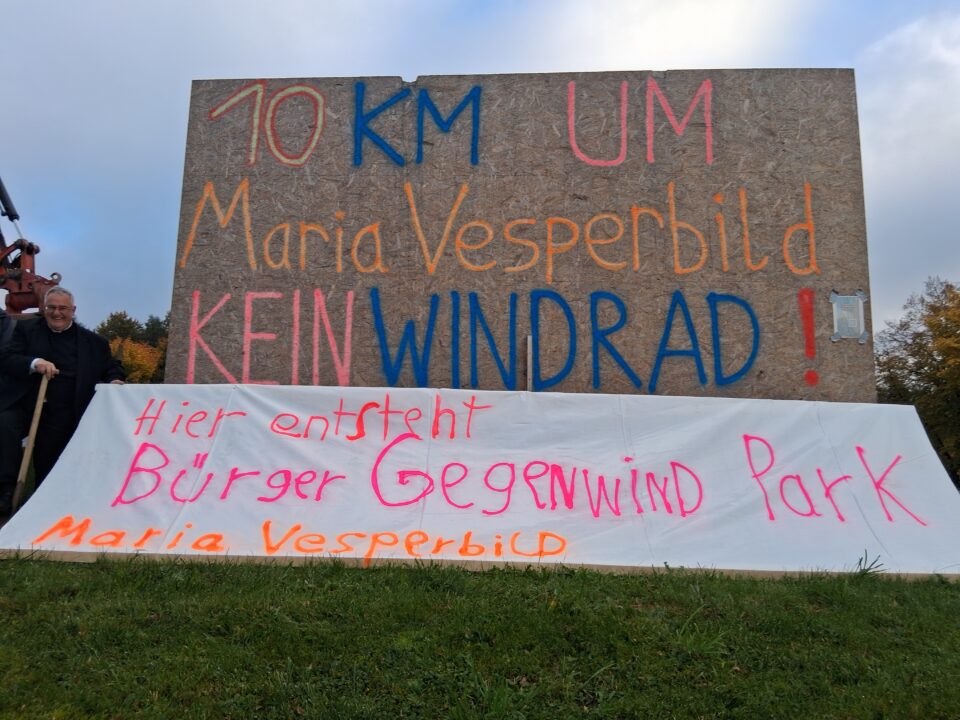 10 KM UM
Maria Vesperbild
KEIN WINDRAD !
Hier entsteht
Bürger GegenWIND Park
Maria Vesperbild